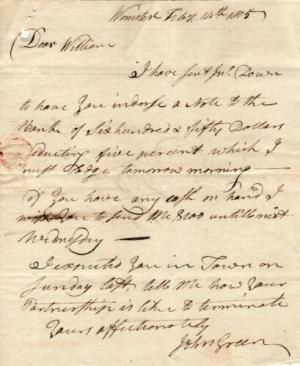 Worcester Feby 14th 1805
Dear William
I have sent Jno. Down
to have You indorse a Note to the
Bank of Six hundred & fifty Dollars
deducting five percent which I
must Lodge tomorrow morning —
if You have any cash on hand I
wish You to send Me $100 untill next
Wednesday —
I expected You in Town on
Sunday last, tell Me how Your
Partnership is like to terminate
Yours affectionately
John Green